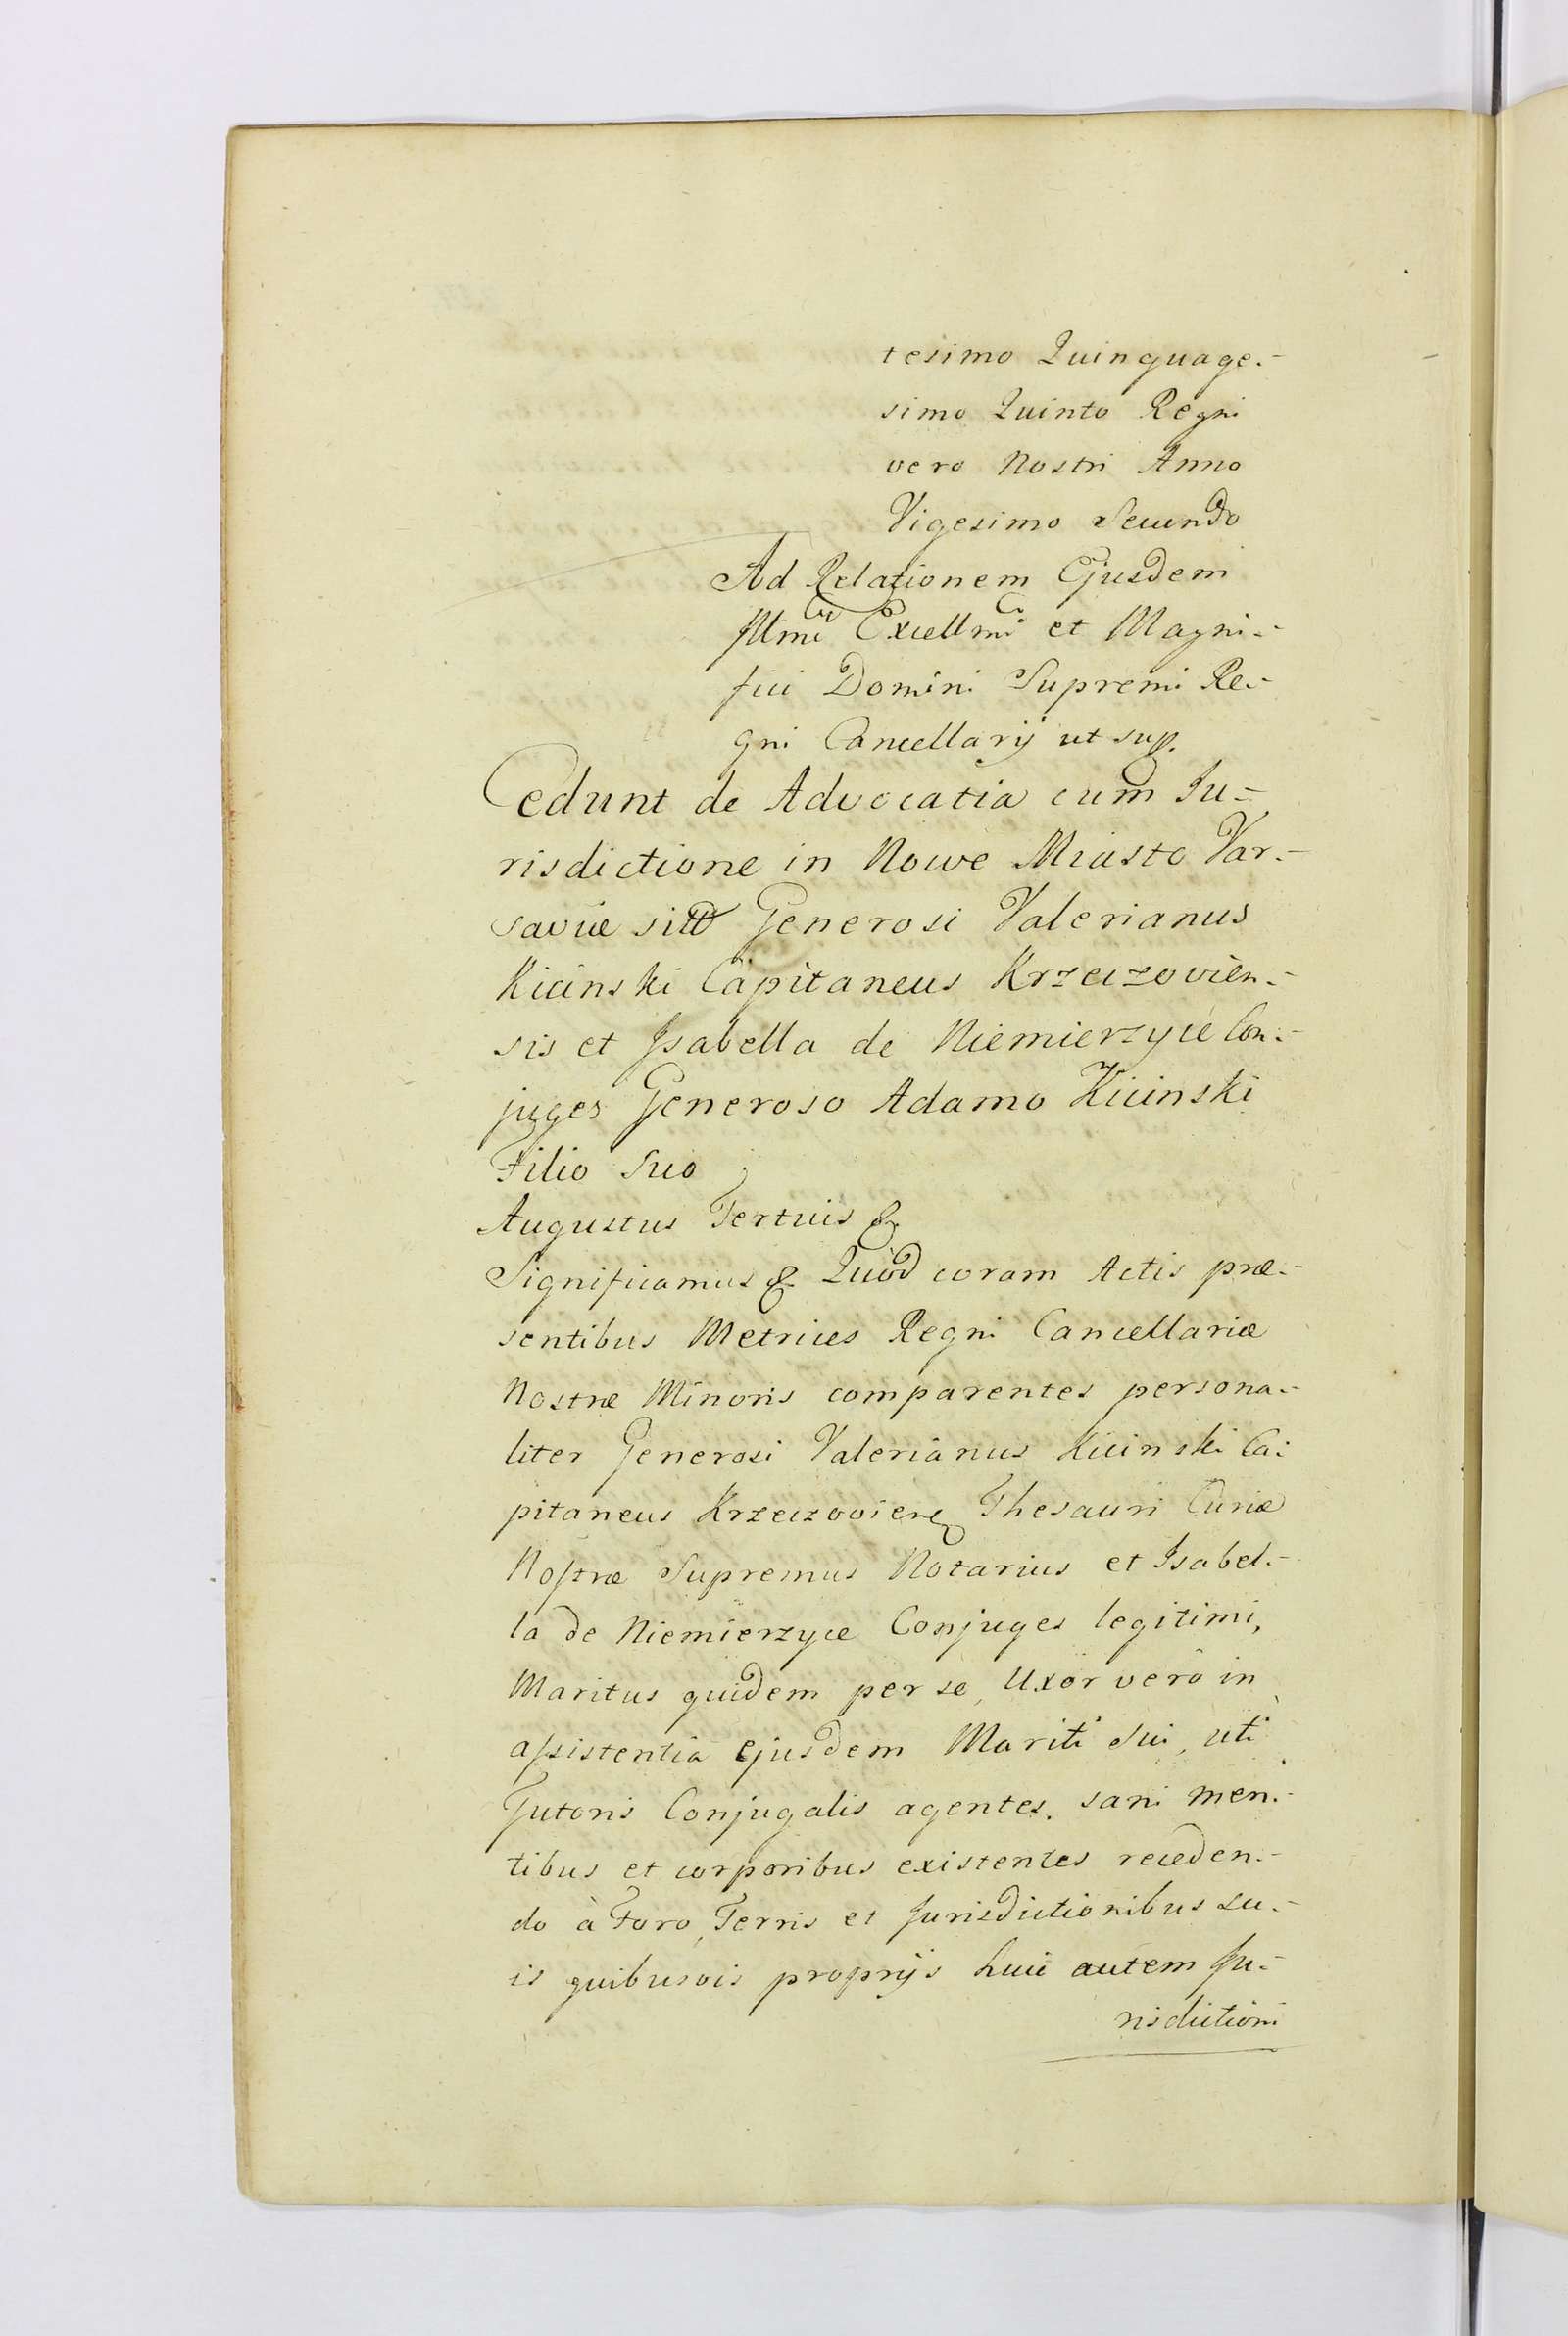 tesimo Quinquage-
simo Quinto Regni
vero Nostri Anno
Vigesimo Secundo
Ad Relationem Ejusdem
Illmi Excellmi et Magni-
fici Domini Supremi Re-
gni Cancellarij ut sup.
Cedunt de Advocatia cum Ju-
risdictione in Nowe Miasto Var-
saviæ Generosi Valerianus
Kicinski Capitaneus Krzeczovien-
sis et Isabella de Niemierzyce Con-
juges Generoso Adamo Kicinski
Filio Suo
Augustus Tertius &
Significamus & Quod coram Actis præ-
sentibus Metrices Regni Cancellariæ
Nostræ Minoris comparentes persona-
liter Generosi Valerianus Kicinski Ca-
pitaneus Krzeczovien Thesauri Curiæ
Nostræ Supremus Notarius et Isabel-
la de Niemierzyce Conjuges legitimi,
Maritus quidem per se, Uxor verò in
assistentia ejusdem Mariti Sui, uti
Tutoris Conjugalis agentes, sani men-
tibus et corporibus existentes receden-
do à Foro, Terris et Jurisdictionibus su-
is quibusvis proprijs huic autem Ju-
risdictioni